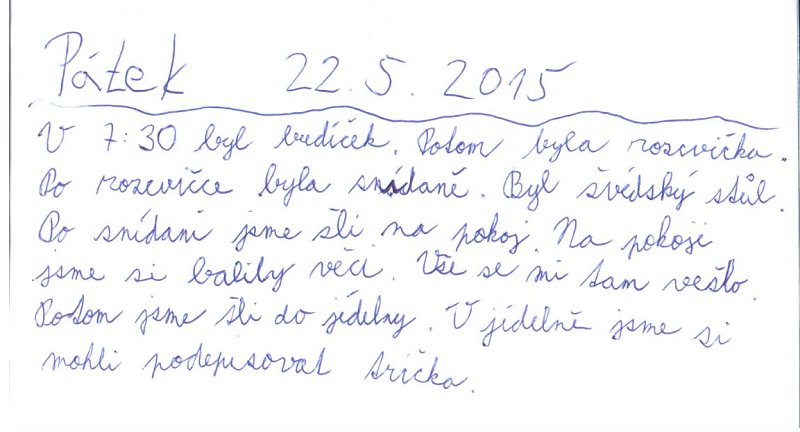 Pátek 22.5.2015
V 7:30 byl budíček. Potom byla rozcvička.
Po rozcvičce byla snídaně. Byl švédský stůl.
Po snídani jsme šli na pokoj. Na pokoji
jsme si balily věci. Vše se mi tam vešlo.
Potom jsme šli do jídelny. V jídelně jsme si
mohli podepisovat trička.